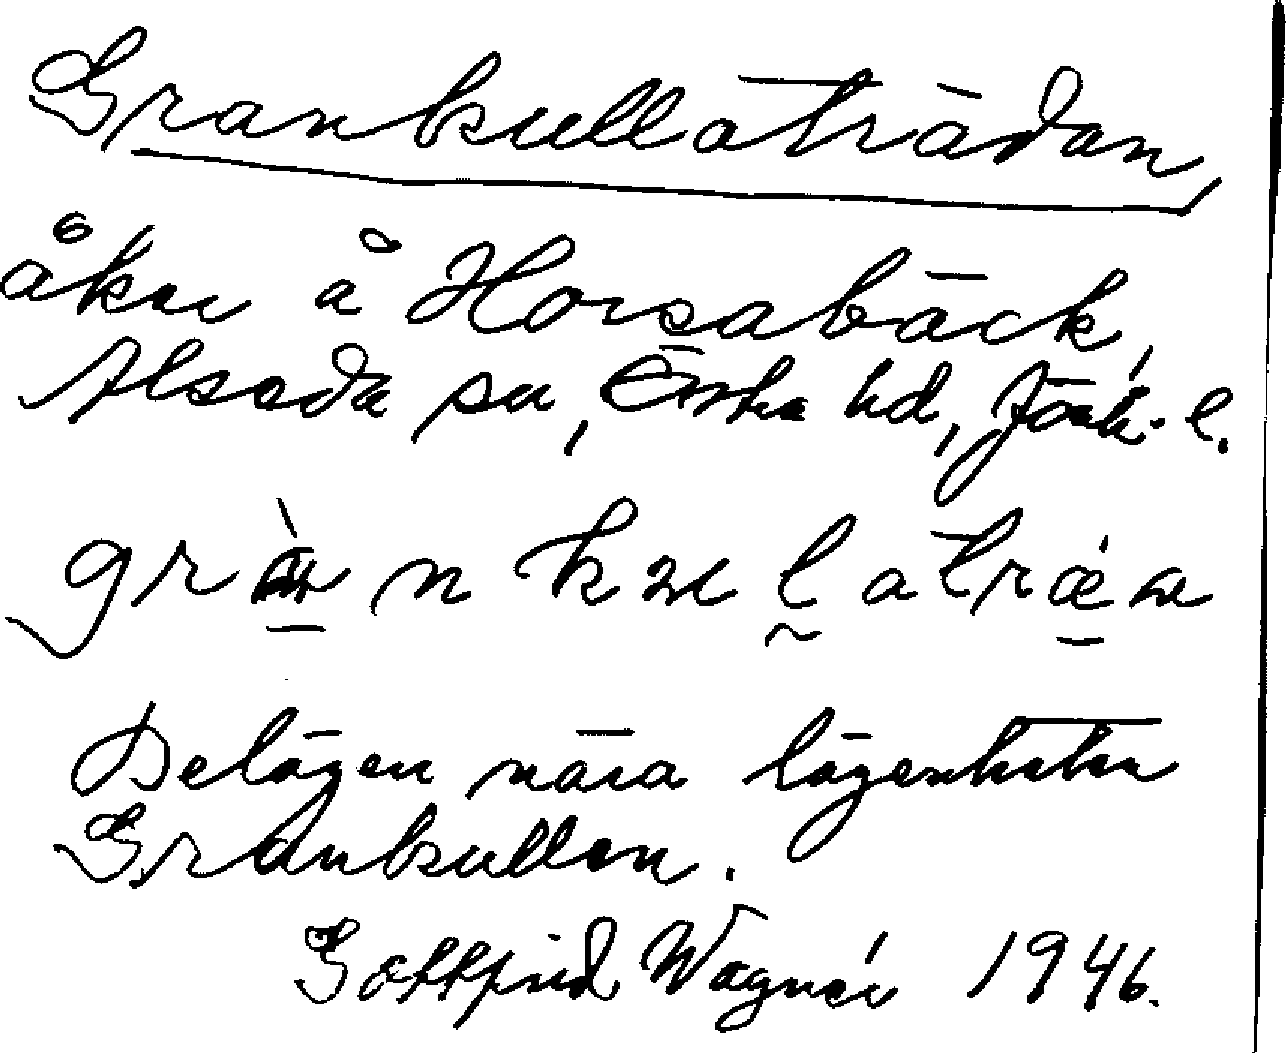 Grankullaträdan,
åker å Horsabäck,
Alseda sn, Östra hd, Jönk. l.
Belägen nära lägenheten
Grankullen.
Gottfrid Wagnér 1946.